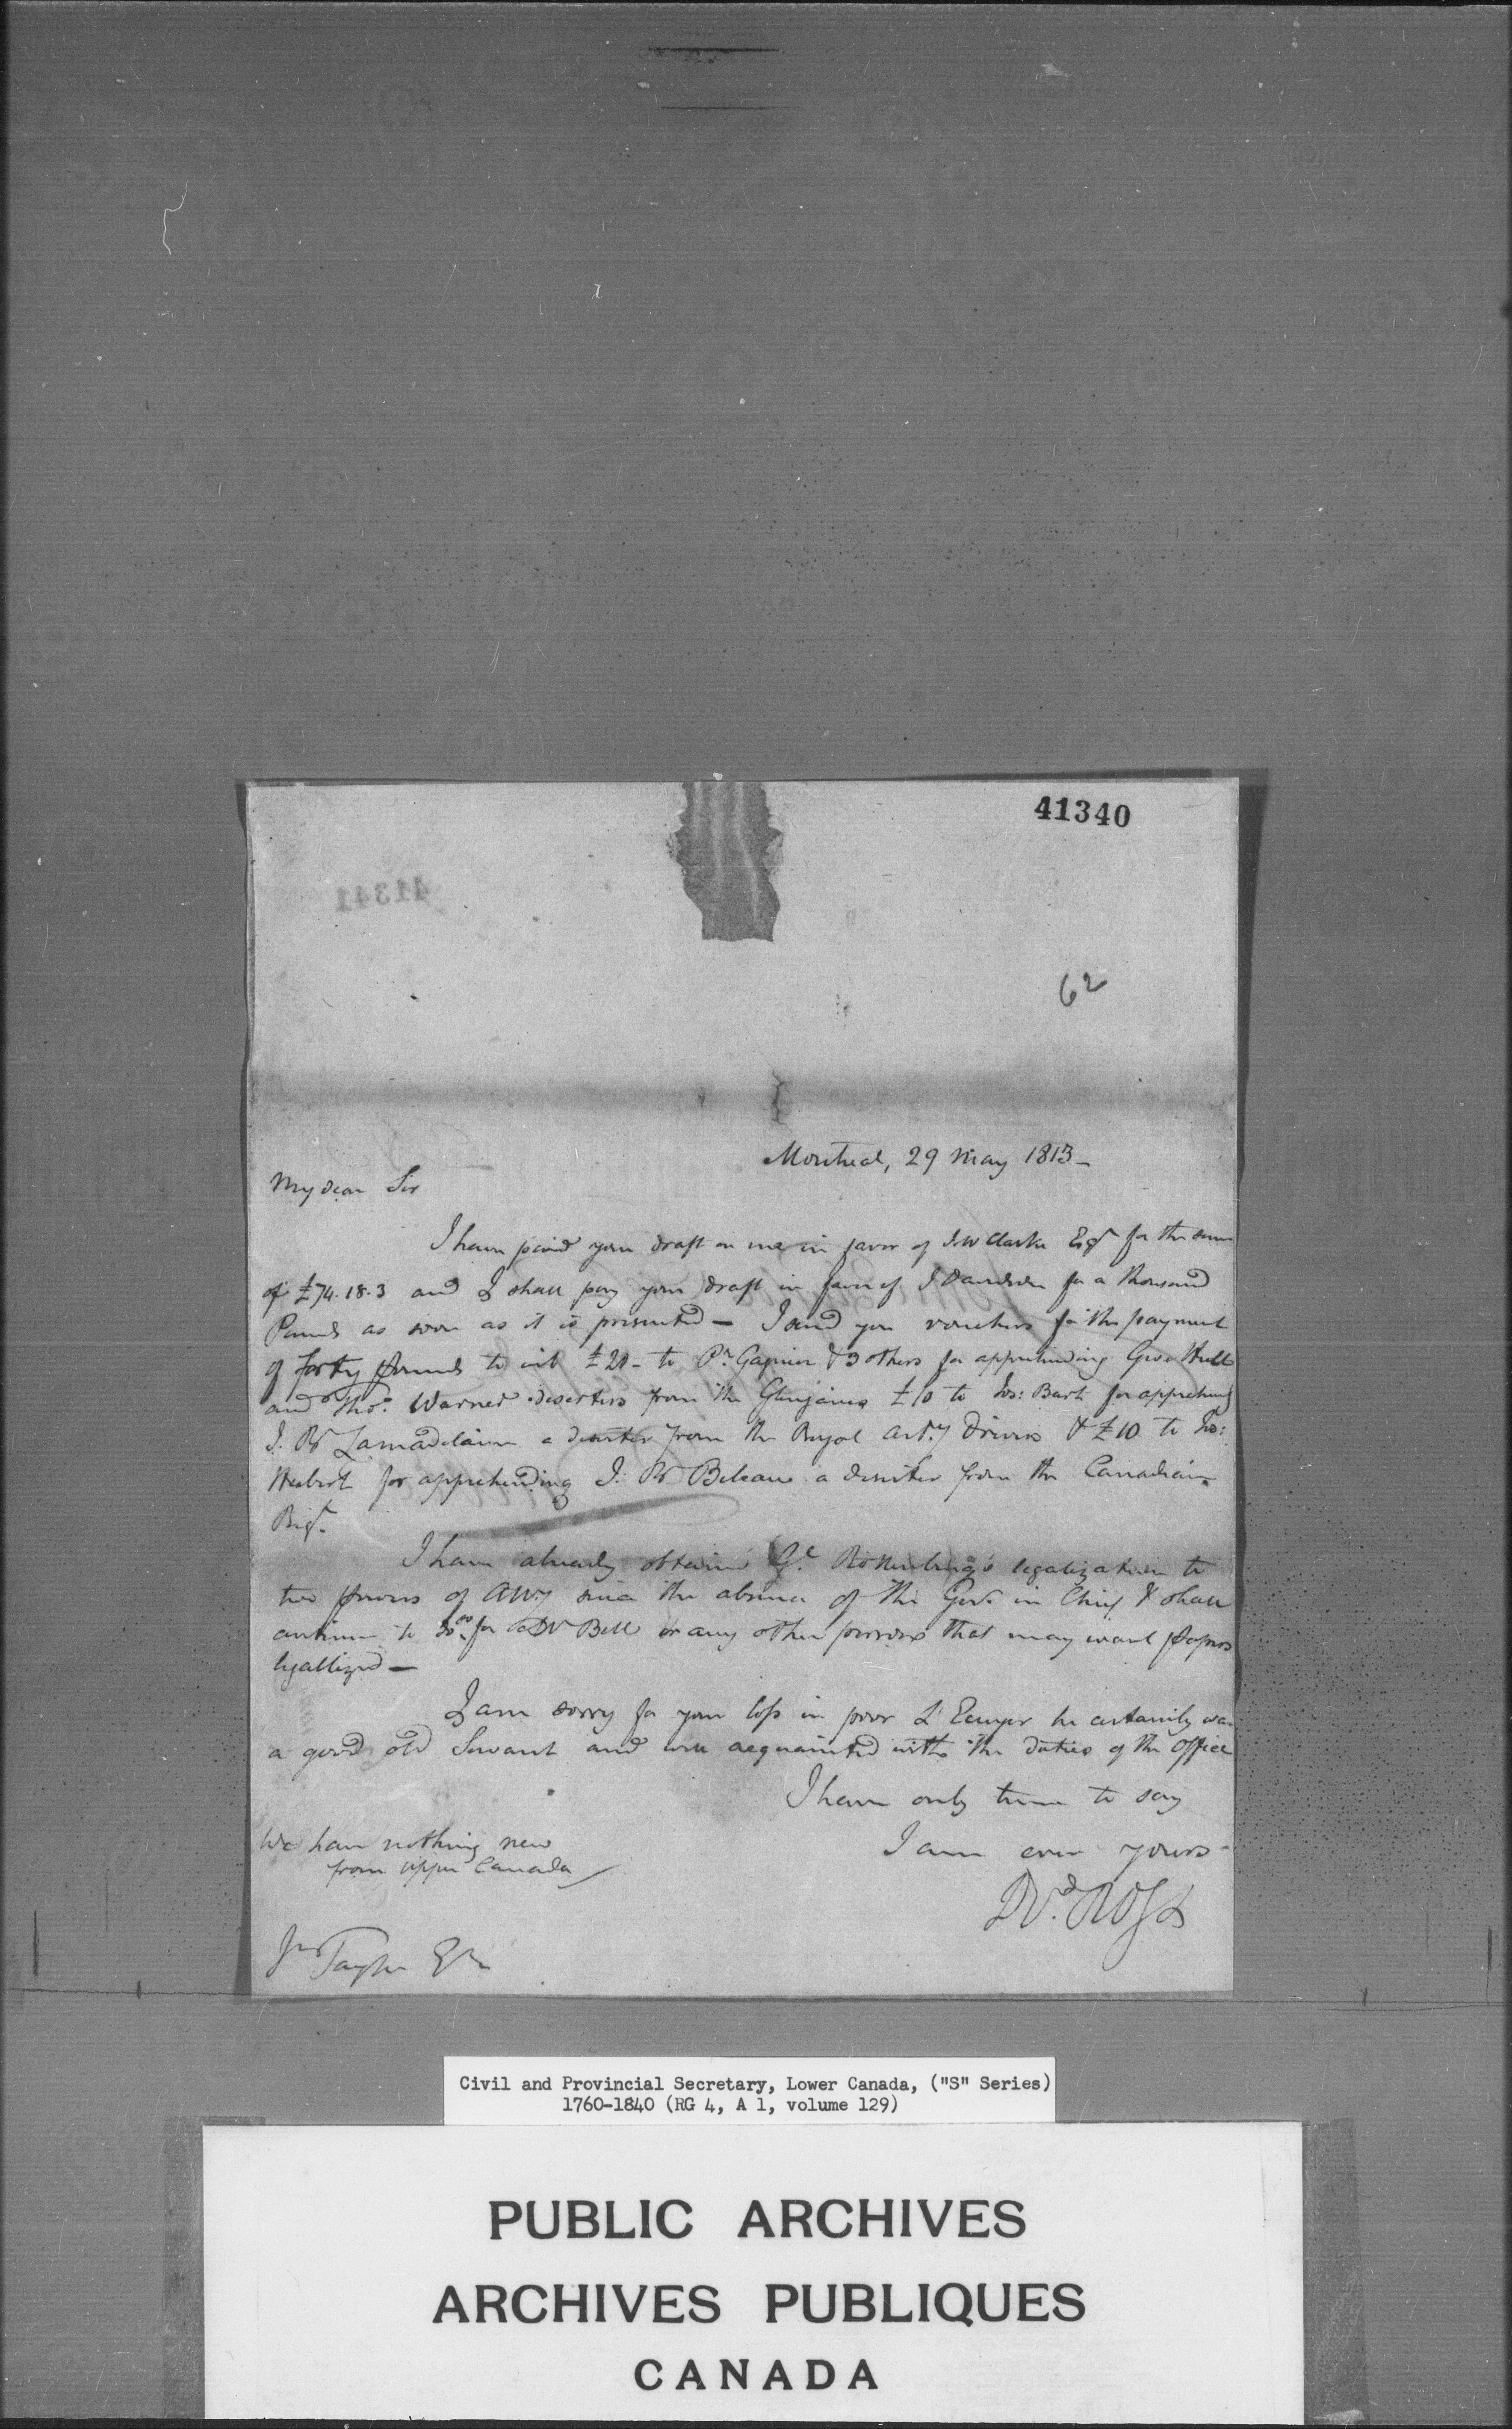 41340
41341
62
Montreal, 29 May 1813 –
My dear Sir
I have paid your draft on me in favor of J W Clarke Esqr for the sum
of £74.18.3 and I shall pay your draft in favor of J Davidson for a thousand
Pounds as soon as it is presented – I send you vouchers for the payment
of forty pounds to wit £20 – to Pr Gagnier & 3 others for apprehending Geo: Hull
and Tho.s Warner deserters from the Glengaries £10 to Jos: Bart for apprehendg
J. Bt Lamadelaine a deserter from the Royal Art.y Drivers & £10 to Jos:
Hubert for apprehending J: Bt Beleau a deserter from the Canadian
Rigt.
I have already obtained Gl. Rottenburg's legalization to
two powers of Atty since the absence of the Govr in Chief & shall
continue to do so for Dr Bell or any other persons that may want papers
legallized –
I am sorry for your loss in poor L'Ecuyer he certainly was
a good old Servant and well acquainted with the duties of the Office
I have only time to say
I am ever yours
Dd. Ross
We have nothing new
from upper Canada
Jno Taylor Esqr
Civil and Provincial Secretary, Lower Canada, ("S" Series)
1760-1840 (RG 4, A 1, volume 129)
PUBLIC ARCHIVES
ARCHIVES PUBLIQUES
CANADA